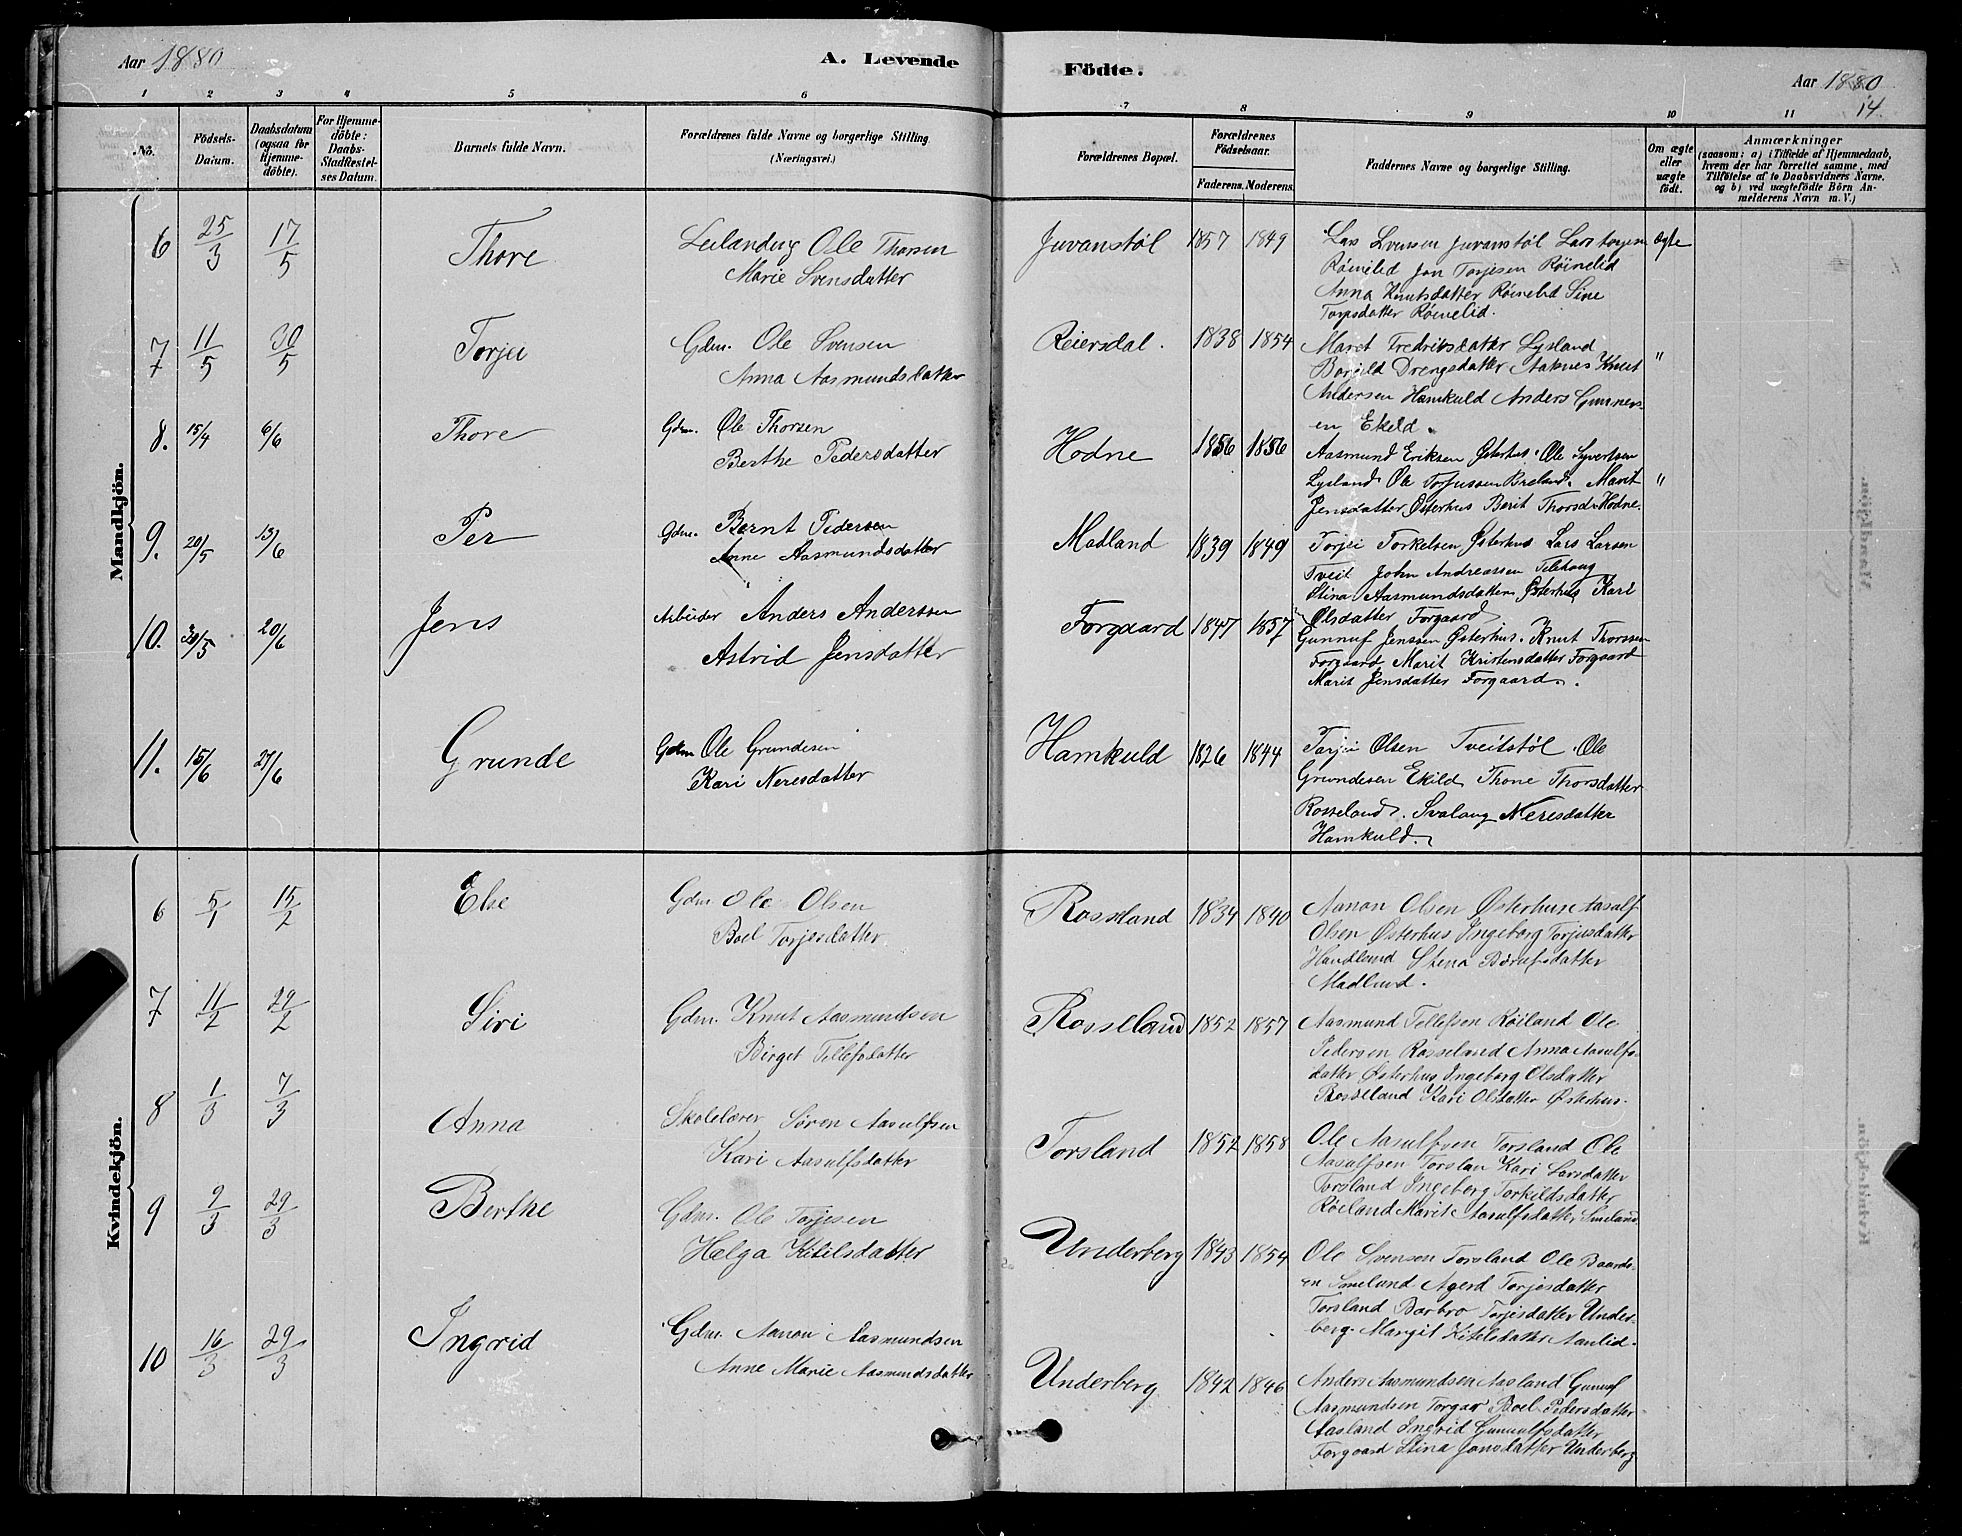 Aar 1880
A. Levende
Födte.
Aar 1880
14.
1 2 3 4 5 6 7 8 9 10 11
No.
Födsels-
Datum.
Daabsdatum
(ogsaa for
Hjemme-
döbte).
For Hjemme-
döbte:
Daabs-
Stadfæstel-
ses Datum.
Barnets fulde Navn.
Forældrenes fulde Navne og borgerlige Stilling
(Næringsvei.)
Forældrenes Bopæl.
Forældrenes
Födselsaar.
Faderens. Moderens.
Faddernes Navne og borgerlige Stilling.
Om ægte
eller
uægte
födt.
Anmærkninger
(saasom: a) i Tilfælde af Hjemmedaab,
hvem der har forrettet samme, med
Tilföielse af to Daabsvidners Navne,
og b) ved uægtefödte Börn An-
melderens Navn m. V.)
Mandkjön.
6 25/3 17/5 Thore
Leilænding Ole Thorsen
Marie Svensdatter
Juvanstøl 1857 1849
Lars Svensen Juvanstøl Lars Torjesen
Røinelid Jon Torjesen Røinelid
Anna Knutsdatter Røinelid Sine
Torjesdatter Røinelid.
Ægte
7 11/5 30/5 Torjei
Gdm. Ole Svensen
Anna Aasmundsdatter
Reiersdal. 1838 1854
Maret Fredriksdatter Lysland
Borgild Drengsdatter Aaknes Knut
Andersen Hamkuld Anders Gunners-
en Ekeld.
"
8. 15/4 6/6 Thore
Gdm. Ole Thorsen
Berthe Pedersdatter
Hodne 1856 1856
Aasmund Eriksen Østerhus. Ole Syvertsen
Lysland Ole Torjussen Breland. Marit
Jensdatter Østerhus Berit Thorsd. Hodne.
"
9. 20/5 13/6 Per
Gdm. Bernt Pedersen
Anne Aasmundsdatter
Madland 1839 1849
Torjei Torkelsen Østerhus Lars Larsen
Tveit John Andreassen Telehaug
Stina Aasmundsdatter Østerhus Kari
Olsdatter Forgaard
10. 30/5 20/6 Jens
Arbeider Anders Anderssen
Astrid Jensdatter
Forgaard 1847 1857
Gunnuf Jenssen Østerhus. Knut Thorssen
Forgaard Marit Kristensdatter Forgaard
Marit Jensdatter Forgaard.
11. 15/6 27/6 Grunde
Gdm Ole Grundesen
Kari Neresdatter
Hamkuld 1826 1844
Torjei Olsen Tveitstøl. Ole
Grundesen Ekild Thone Thorsdatter
Rosseland. Svalaug Neresdatter
Hamkuld.
Kvindekjön.
6 5/1 15/2 Else
Gdm. Ole Olsen
Boel Torjesdatter
Rosseland 1834 1840
Aanon Olsen Østerhus Aasulf
Olsen Østerhus Ingeborg Torjusdatter
Handland Stena
Madland.
7 11/2 29/2 Siri
Gdm. Knut Aasmundsen
Birget Tellefsdatter
Rosseland 1852 1857
Aasmund Tellefsen Røiland Ole
Pedersen Rosseland Anna Aasulfs-
datter Østerhus Ingeborg Olsdatter
Rosseland Kari Olsdatter Østerhus.
8 1/3 7/3 Anna
Skolelærer Søren Aasulfsen
Kari Aasulfsdatter
Torsland 1852 1858
Ole Aasulfsen Torsland Ole
Aasulfsen Torslan Kari Larsdatter
Torsland Ingeborg Torkildsdatter
Røeland Marit Aasulfsdatter Smeland
9 9/3 29/3 Berthe
Gdm. Ole Torjesen
Helga Kitilsdatter
Underberg 1843 1854
Ole Svensen Torsland Ole Baards-
en Smeland Agerd Torjesdatter
Torsland Barbro Torjesdatter Under-
berg. Margit Kitilsdatter Aanlid.
10 16/3 29/3 Ingrid
Gdm. Aanon Aasmundsen
Anne Marie Aasmundsdatter
Underberg 1842 1846
Anders Aasmundsen Aasland Gunuf
Aasmundsen Torgaar Boel Pedersdatter
Aasland Ingrid Gunulfsdatter
Forgaard Stina Jonsdatter Underberg